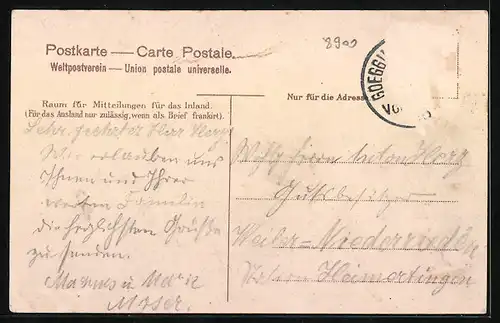 Postkarte — Carte Postale.
Weltpostverein — Union postale universelle.
8900
GOEGGI
Vo
Raum für Mitteilungen für das Inland.
(Für das Ausland nur zulässig, wenn als Brief frankirt).
Nur für die Adresse
Sehr geehrter Herr Herz
Wir erlauben uns
Ihnen und Ihrer
werten Familie
die herzlichsten Grüße
zu senden.
Magnus u Marie
Moser.
Herz
Gutsbesitzer
Weiler-Niederrieden
Heimertingen